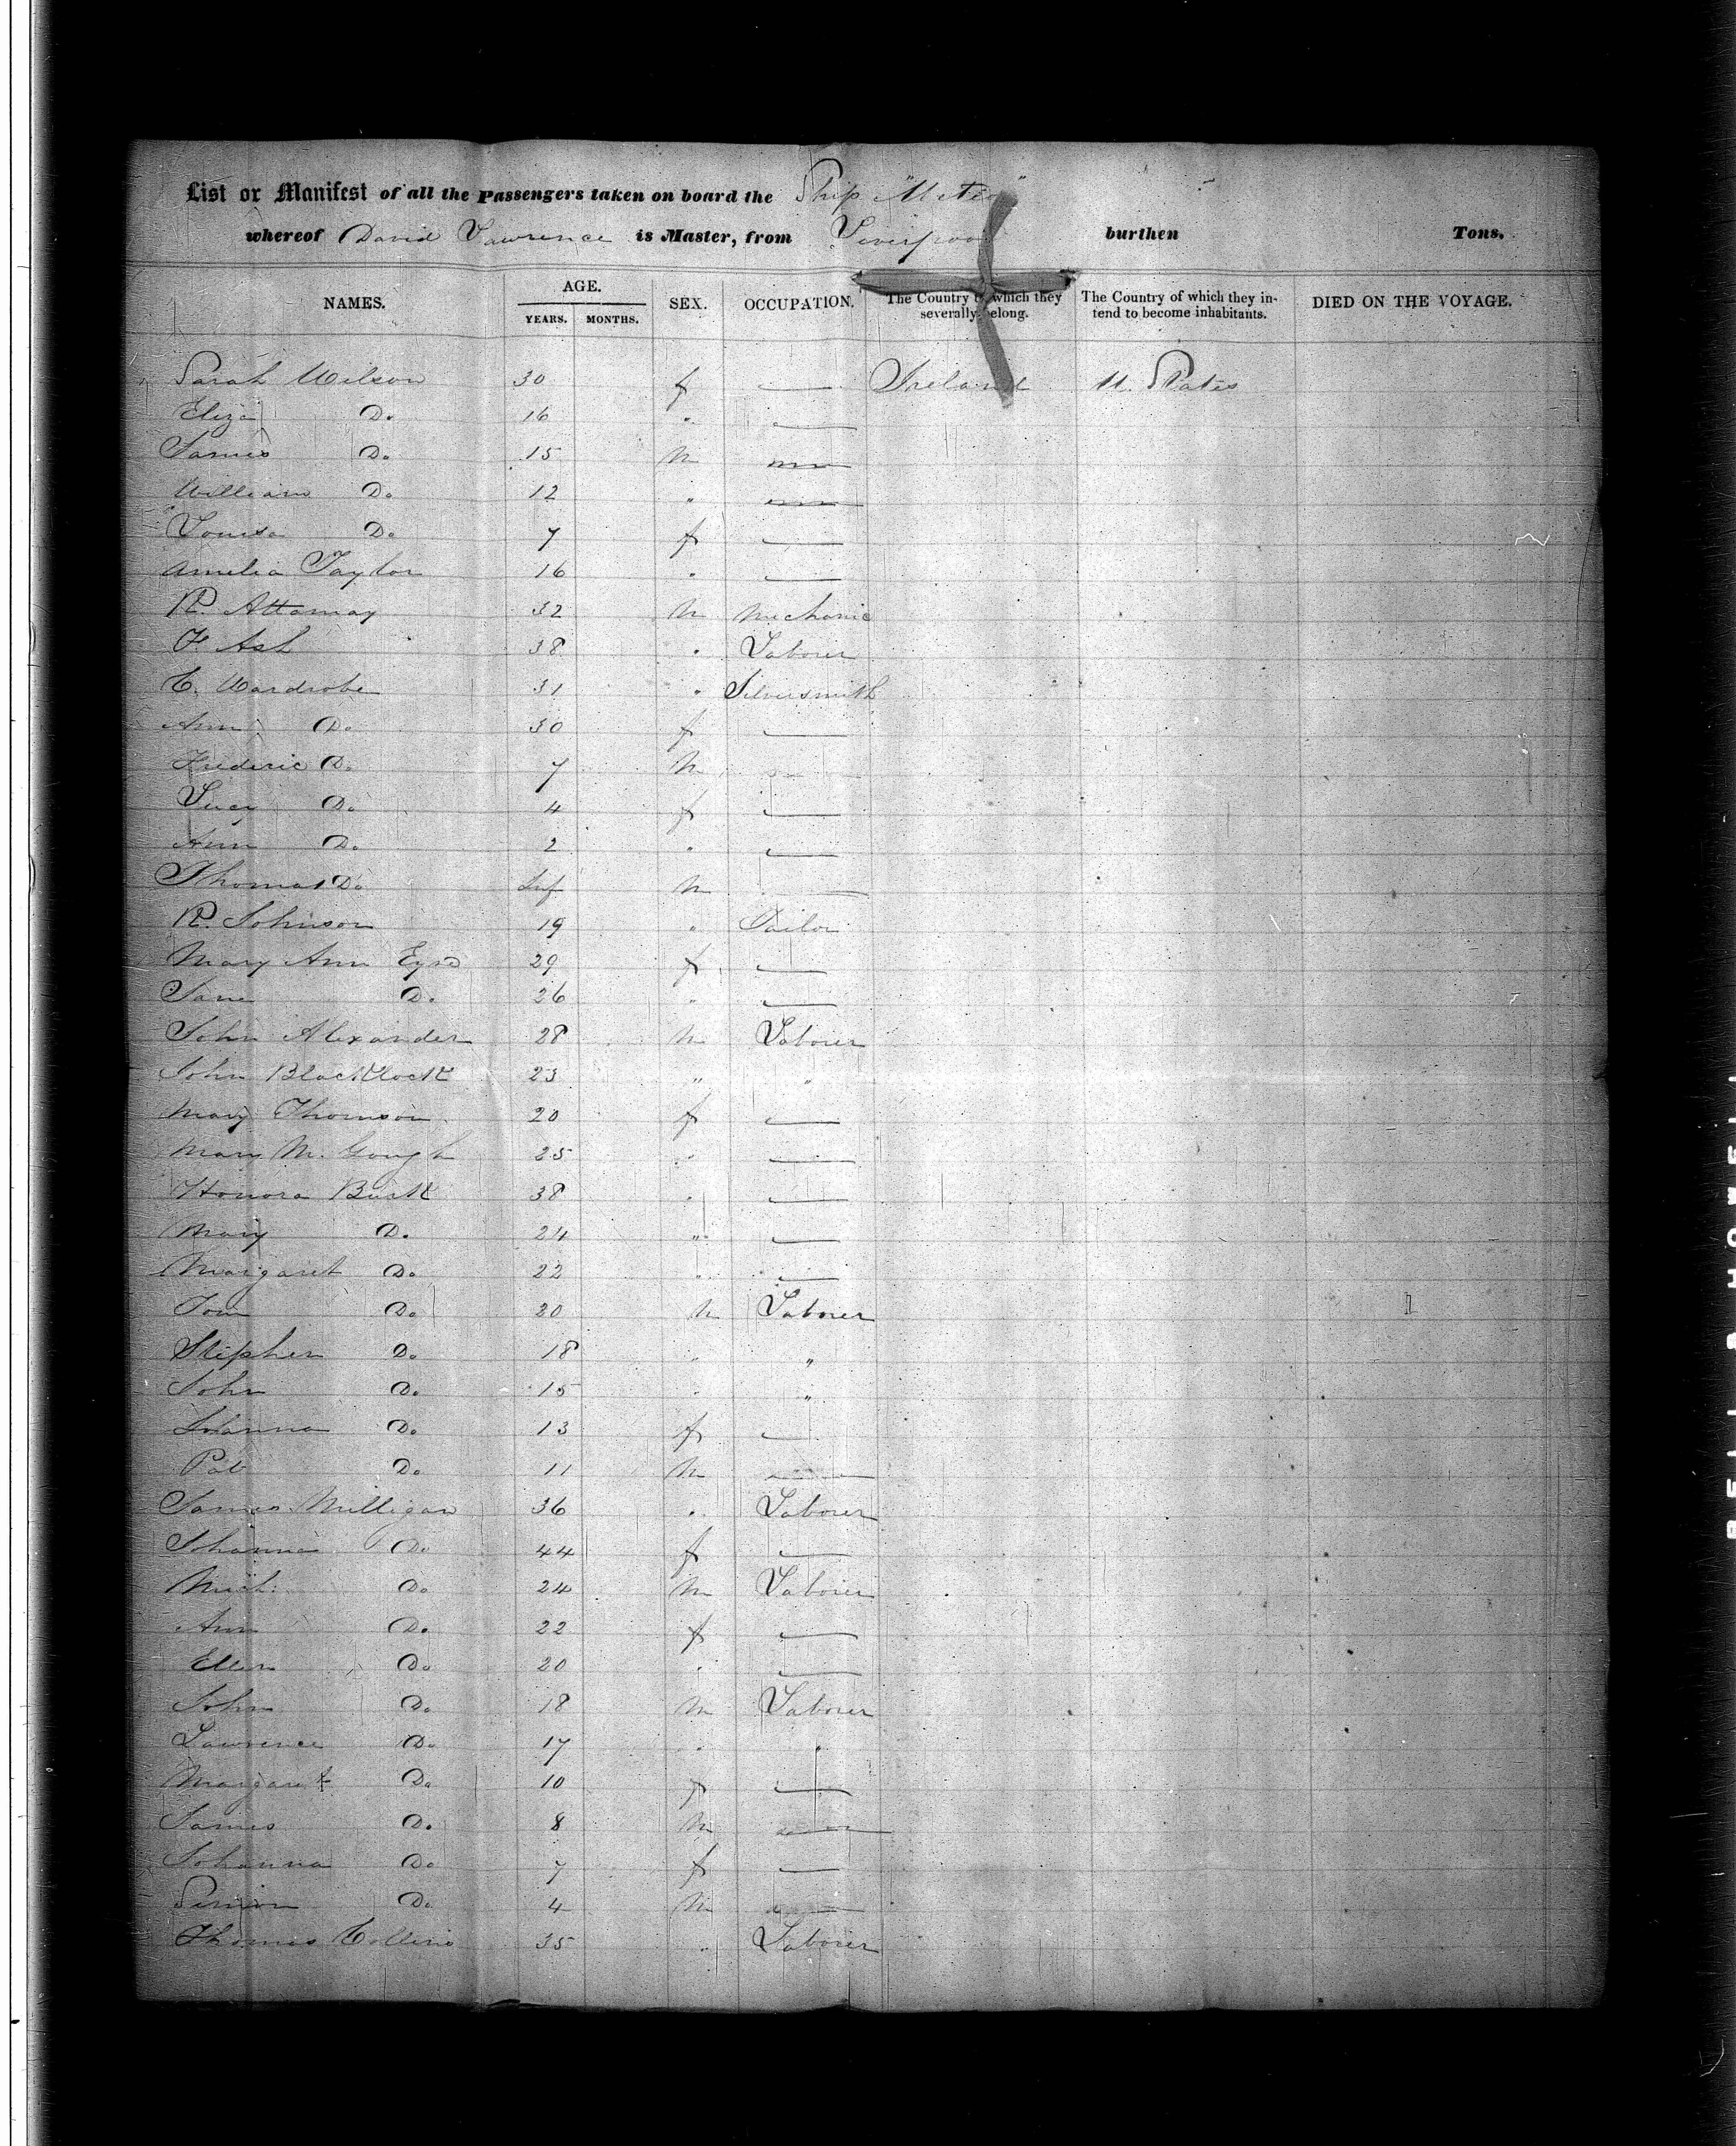 List or Manifest of all the Passengers taken on board the Ship "
whereof David Lawrence is Master, from Liverpool burthen Tons.
NAMES. AGE. SEX. OCCUPATION. The Country to which they severally belong. The Country of which they in- tend to become inhabitants. DIED ON THE VOYAGE.
YEARS. MONTHS.
Sarah Wilson 30 f — Ireland U. States
Eliza Do 16 " —
James Do 15 m —
William Do 12 " —
Louisa Do 7 f —
Amelia Taylor 16 " —
R. Attaway 32 m Mechanic
F Ash 38 " Laborer
C. Wardrobe 31 " Silversmith
Ann Do 30 f —
Frederic Do 7 m
Lucy Do 4 f —
Ann Do 2 " —
Thomas Do Inf m —
R. Johnson 19 " Tailor
Mary Ann Eyre 29 f —
Jane Do 26 " —
John Alexander 28 m Laborer
John Blacklock 23 " "
Mary Thomson 20 f —
Mary M. Gough 25 " —
Honora Burk 38 " —
Mary Do 24 " —
Margaret Do 22 " —
Tom Do 20 m Laborer
Stephen Do 18 " "
John Do 15 " "
Johanna Do 13 f —
Pat Do 11 m —
James Milligan 36 " Laborer
Johanna Do 44 f —
Mich: Do 24 m Laborer
Ann Do 22 f —
Ellen Do 20 " —
John Do 18 m Laborer
Lawrence Do 17 " "
Margaret Do 10 f —
James Do 8 m —
Johanna Do 7 f —
Simon Do 4 m —
Thomas Collins 35 " Laborer